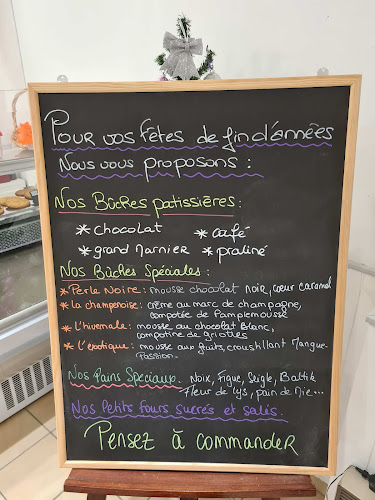 Pour vos fêtes de fin d'années
Nous vous proposons :
Nos Bûches patissières :
* chocolat * café
* grand Marnier * praliné
Nos Bûches Spéciales :
* Perle Noire : mousse chocolat noir, cœur caramel
* La champenoise : crème au marc de champagne,
compotée de Pamplemousse
* L'hivernale : mousse au chocolat blanc,
compotine de griottes
* L'exotique : mousse aux fruits, croustillant Mangue-
Passion.
Nos Pains Speciaux. Noix, Figue, Seigle, Baltik
Fleur de Lys, pain de Mie...
Nos Petits fours sucrés et salés.
Pensez à commander